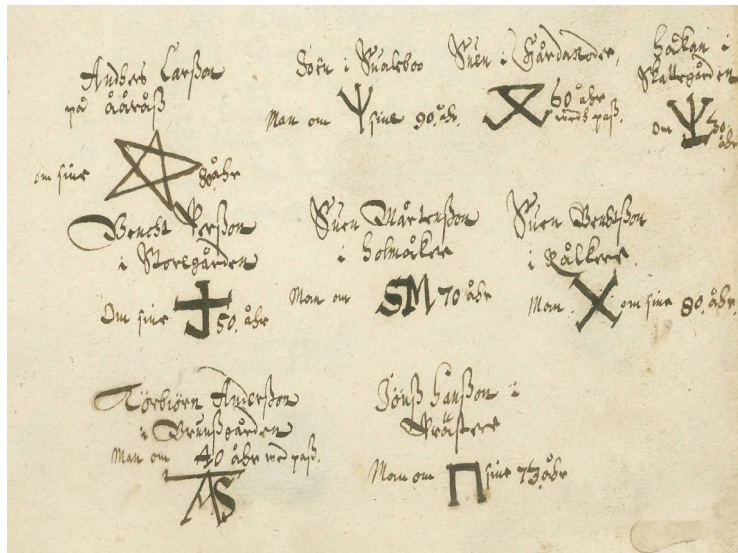 Anders Larßon
på ååråß
om sine åhr
Jöen i Sualeboo
Man om sine 90. åhr.
Suen i
60 åhr
wedh paß.
Håkan i
Skattegården
Om 30.
åhr
Bencht Perßon
i Storegården
Om sine 50. åhr
Suen Mårtenßon
i Holmåkee
Man om SM 70 åhr
Suen Bendtßon
i
Man X om sine 80. åhr.
Törbiörn Anderßon
i Brunßgården
Man om 40 åhr wed paß.
Jönß Hanßon i
Man om sine 73. åhr